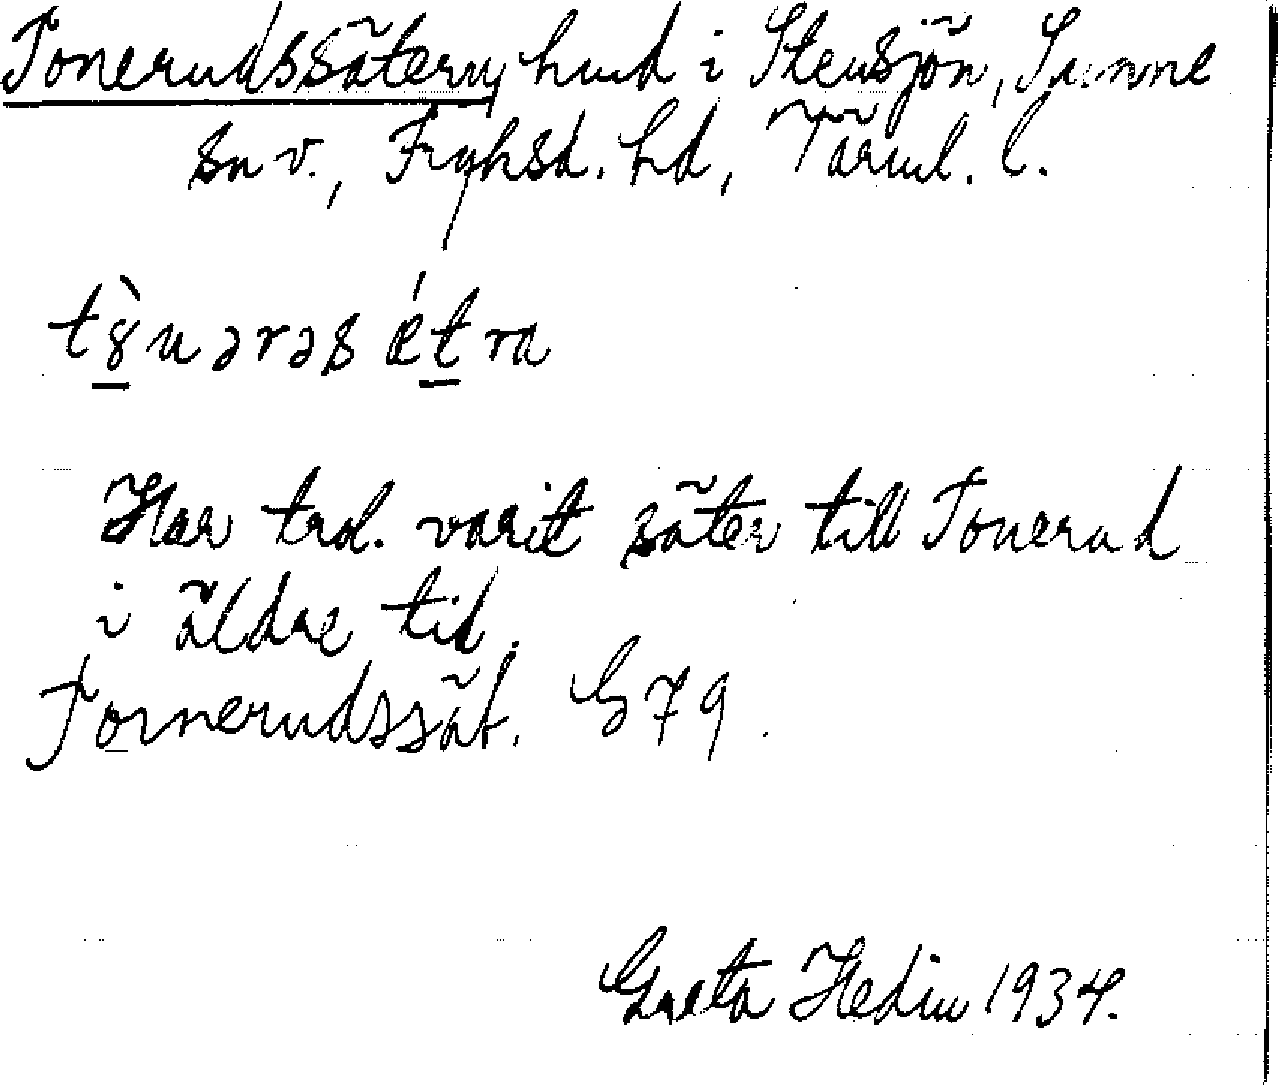 Tonerudssätern, hmd i Stensjön, Sunne
sn v., Fryksd. hd, Värml. l.
tȣ̀nərəsǽtra
Har trol. varit säter till Tonerud
i äldre tid.
Tornerudssät. G 79.
Greta Hedin 1934.